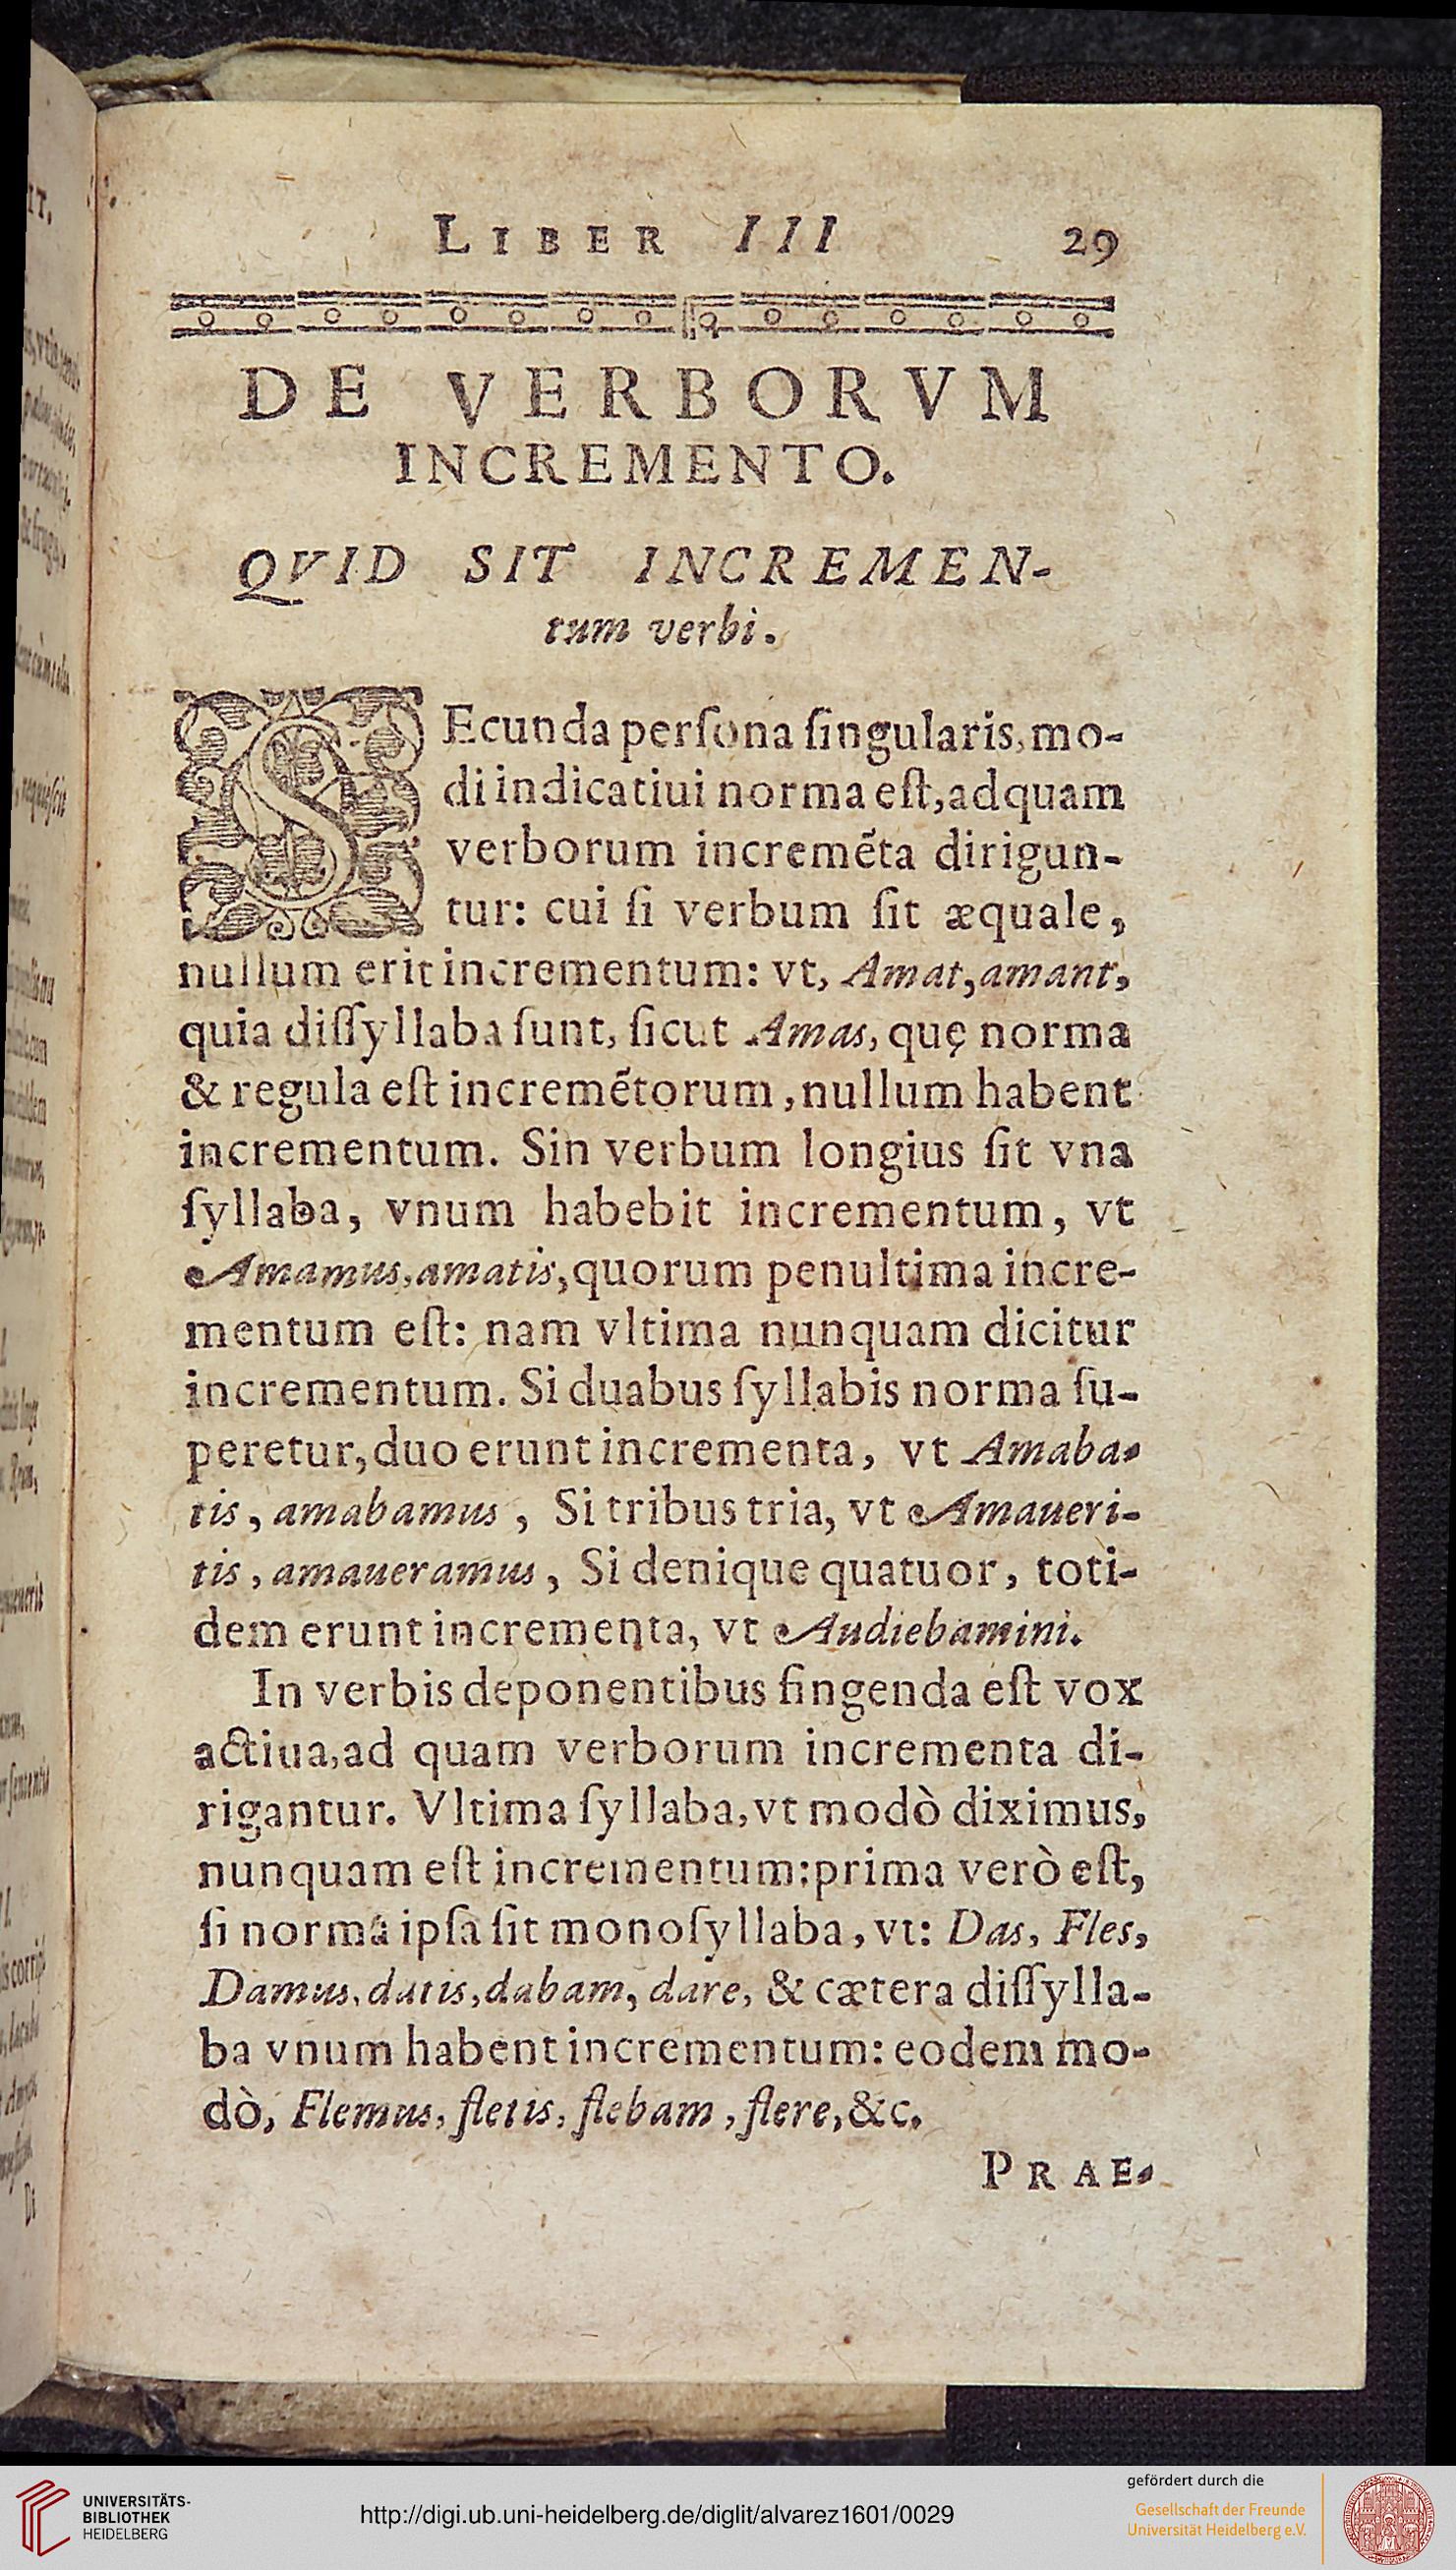 LIBER III 29
DE VERBORVM
INCREMENTO.
QVID SIT INCREMEN-
tum verbi.
SEcunda perſona ſingularis, mo-
di indicatiui norma eſt, ad quam
verborum incremẽta dirigun-
tur: cui ſi verbum ſit æquale,
nullum erit incrementum: vt, Amat, amant,
quia diſſyllaba ſunt, ſicut Amas, quę norma
& regula eſt incremẽtorum, nullum habent
incrementum. Sin verbum longius ſit vna
ſyllaba, vnum habebit incrementum, vt
Amamus, amatis, quorum penultima incre-
mentum eſt: nam vltima nunquam dicitur
incrementum. Si duabus ſyllabis norma ſu-
peretur, duo erunt incrementa, vt Amaba-
tis, amabamus, Si tribus tria, vt Amaueri-
tis, amaueramus, Si denique quatuor, toti-
dem erunt incrementa, vt Audiebamini.
In verbis deponentibus fingenda eſt vox
actiua, ad quam verborum incrementa di-
rigantur. Vltima ſyllaba, vt modò diximus,
nunquam eſt incrementum: prima verò eſt,
ſi norma ipſa ſit monoſyllaba, vt: Das, Fles,
Damus, datis, dabam, dare, & cætera diſſylla-
ba vnum habent incrementum: eodem mo-
dò, Flemus, fletis, flebam, flere, &c.
PRAE-
UNIVERSITÄTS-
BIBLIOTHEK
HEIDELBERG
http://digi.ub.uni-heidelberg.de/diglit/alvarez1601/0029
gefördert durch die
Gesellschaft der Freunde
Universität Heidelberg e.V.